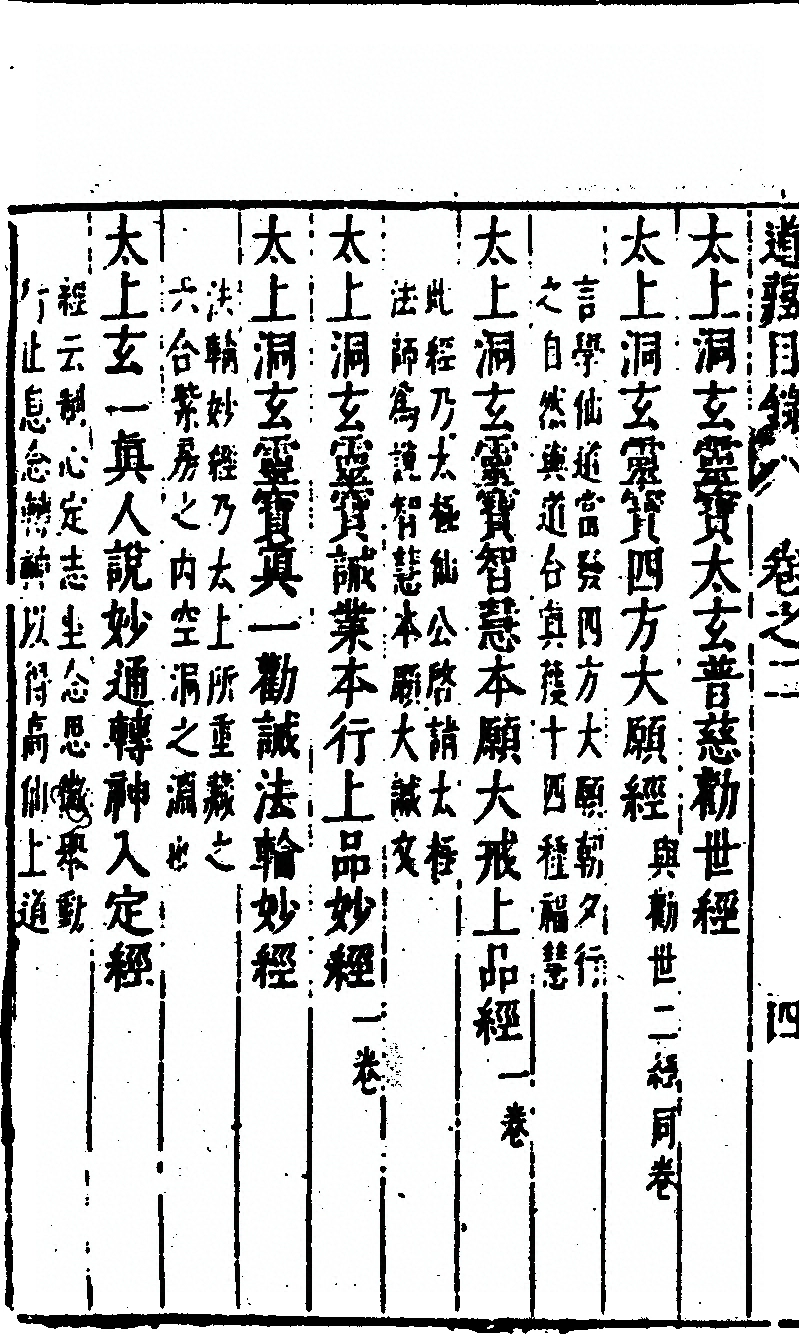 道藏目錄 卷之二 四
太上洞玄靈寶太玄普慈勸世經
太上洞玄靈寶四方大願經 與勸世二經同卷
言學仙道當發四方大願朝夕行
之自然與道合真獲十四種福慧
太上洞玄靈寶智慧本願大戒上品經 一卷
此經乃太極仙公啓請太極
法師爲說智慧本願大誡文
太上洞玄靈寶誡業本行上品妙經 一卷
太上洞玄靈寶真一勸誡法輪妙經
法輪妙經乃太上所重藏之
六合紫房之內空洞之淵也
太上玄一真人說妙通轉神入定經
經云制心定志坐念思微舉動
行止息念轉轉以得高仙上道